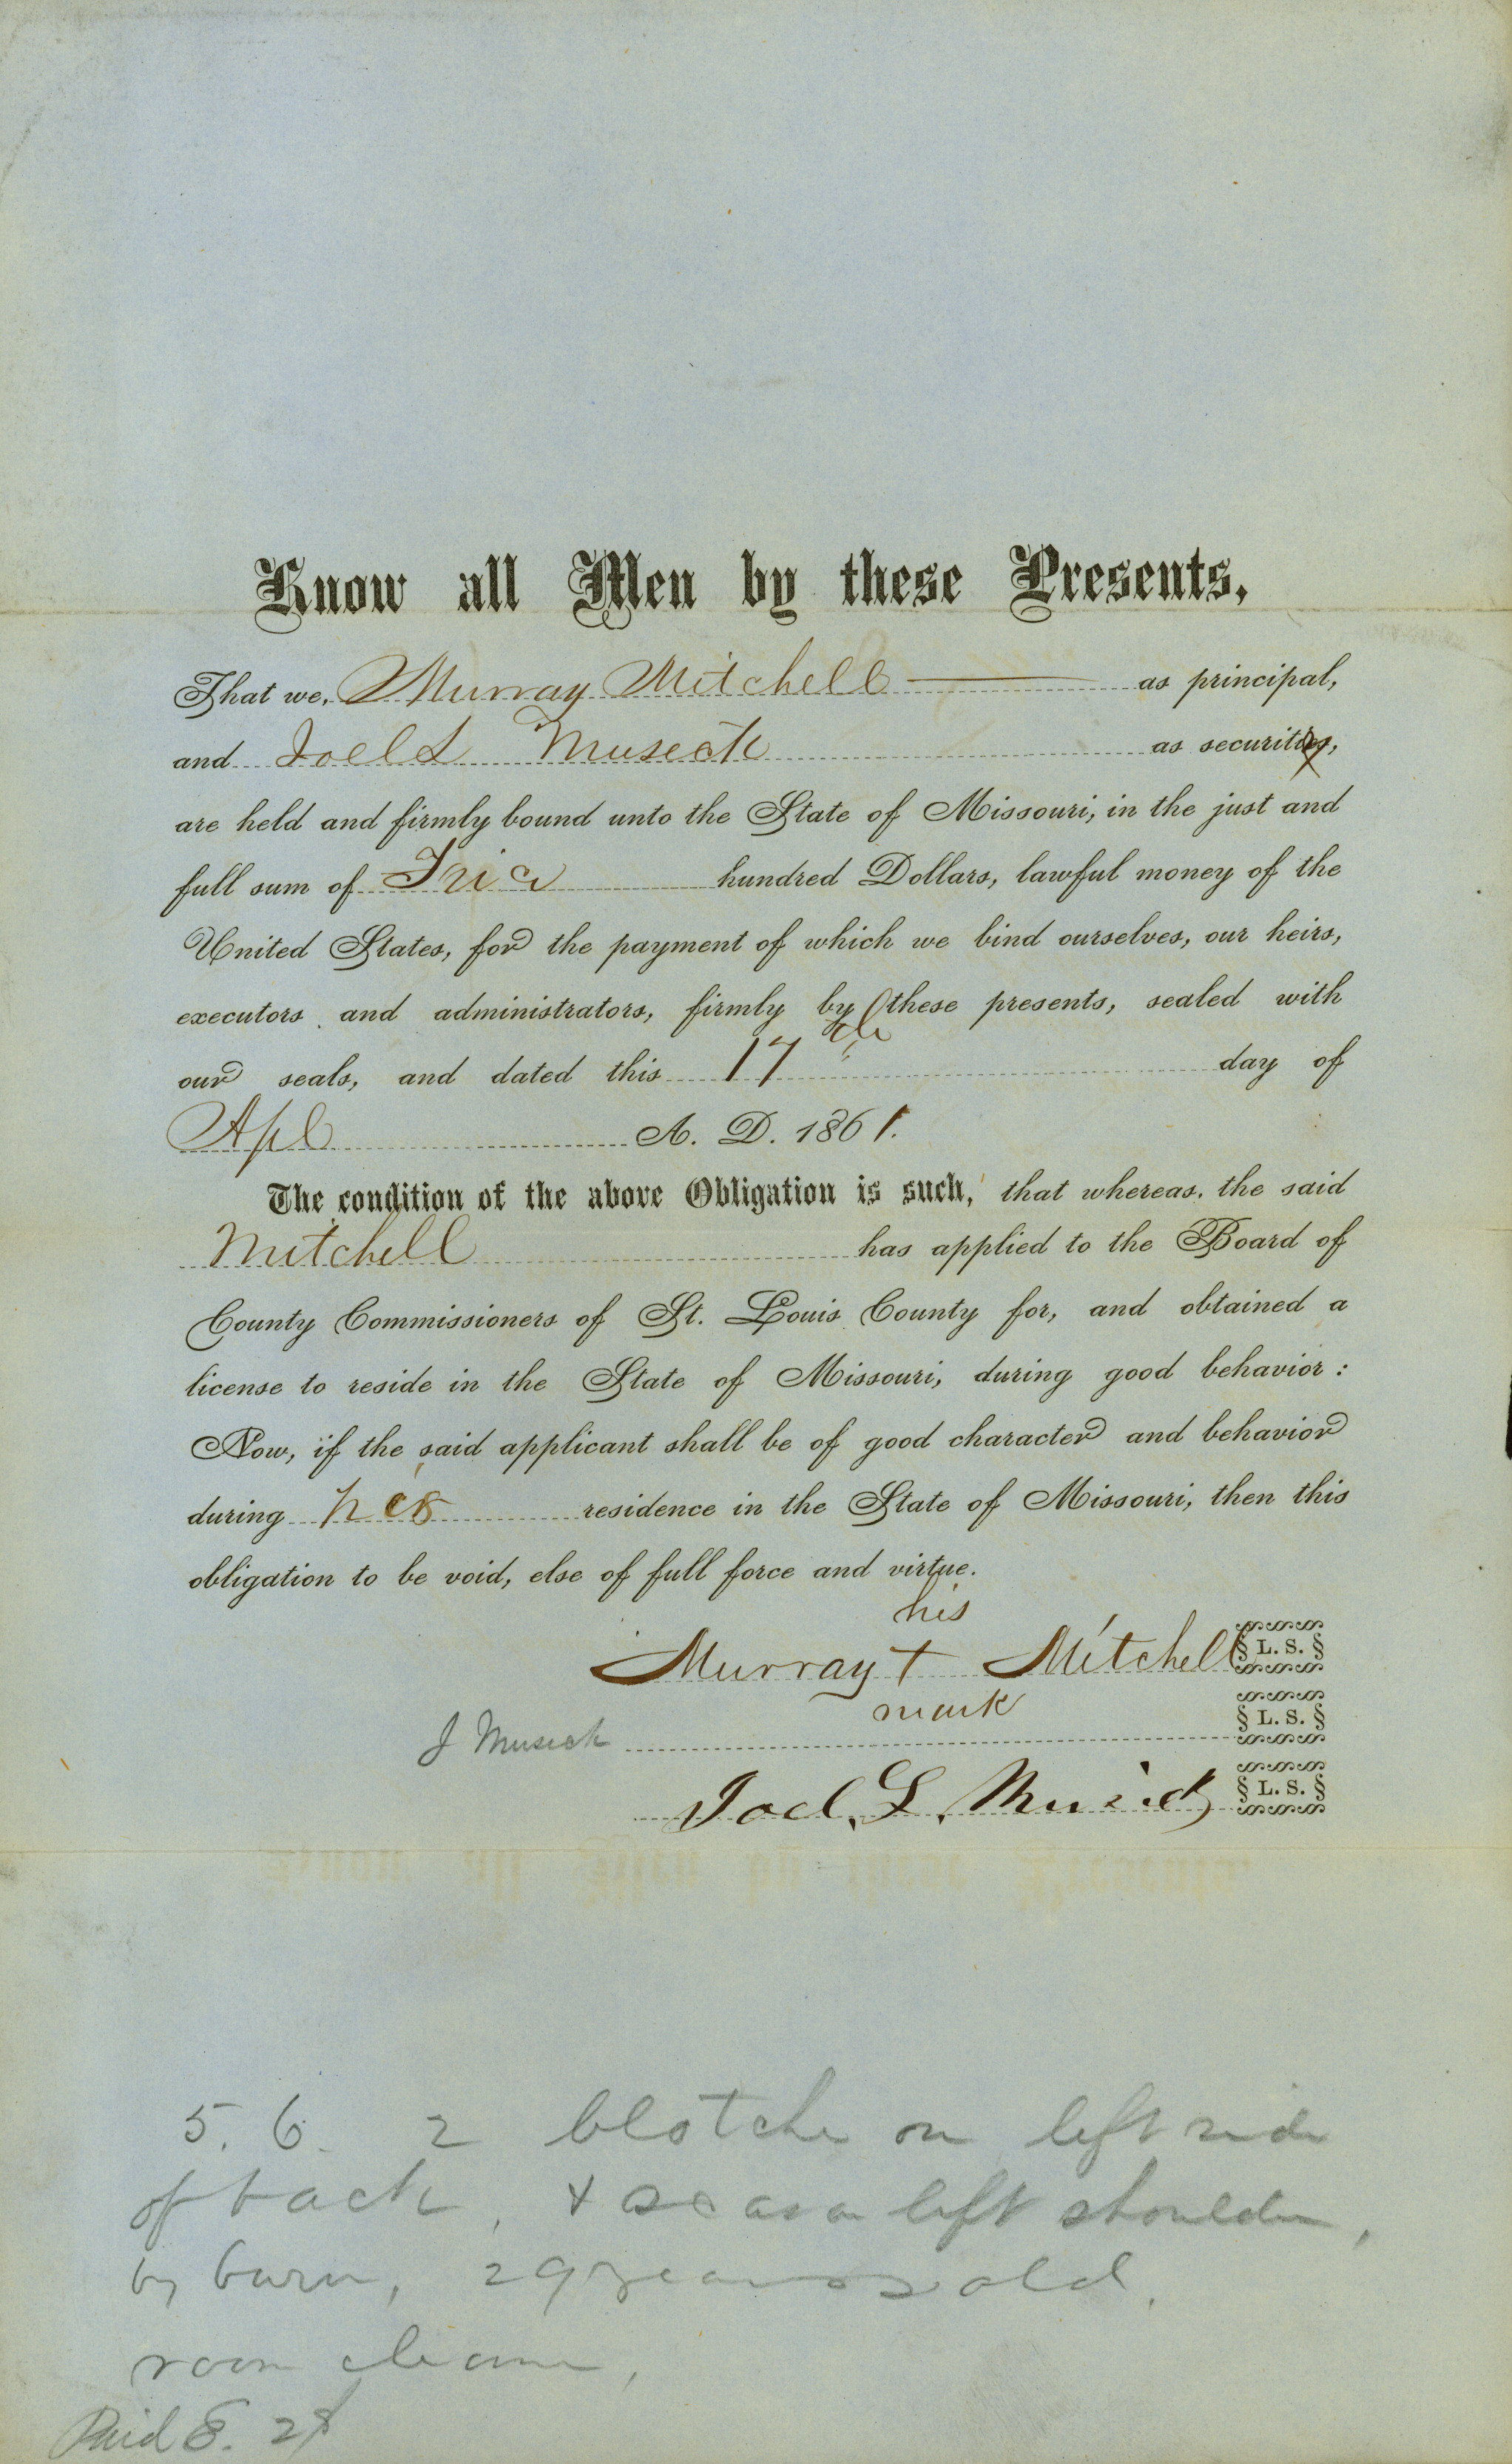 Know all Men by these Presents,
That we, Murray Mitchell as principal,
and Joel L Musick as security,
are held and firmly bound unto the State of Missouri, in the just and
full sum of hundred Dollars, lawful money of the
United States, for the payment of which we bind ourselves, our heirs,
executors and administrators, firmly by these presents, sealed with
our seals, and dated this 17th day of
Apl A. D. 1861.
The condition of the above Obligation is such, that whereas, the said
Mitchell has applied to the Board of
County Commissioners of St. Louis County for, and obtained a
license to reside in the State of Missouri, during good behavior:
Now, if the said applicant shall be of good character and behavior
during his residence in the State of Missouri, then this
obligation to be void, else of full force and virtue.
his
Murray + Mitchell L. S.
mark
J Musick L. S.
Joel. L. Musick L. S.
5. 6. 2 blotche on left side
of back, & scar on left shoulder,
by burn, 29 years old.
room cleaner,
Paid